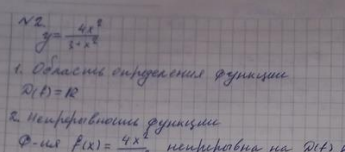 №2.
y = 4x²/3+x²
1. Область определения функции
D(f) = R
2. Непрерывность функции
Ф-ия f(x) = 4x² непрерывна на D(f)